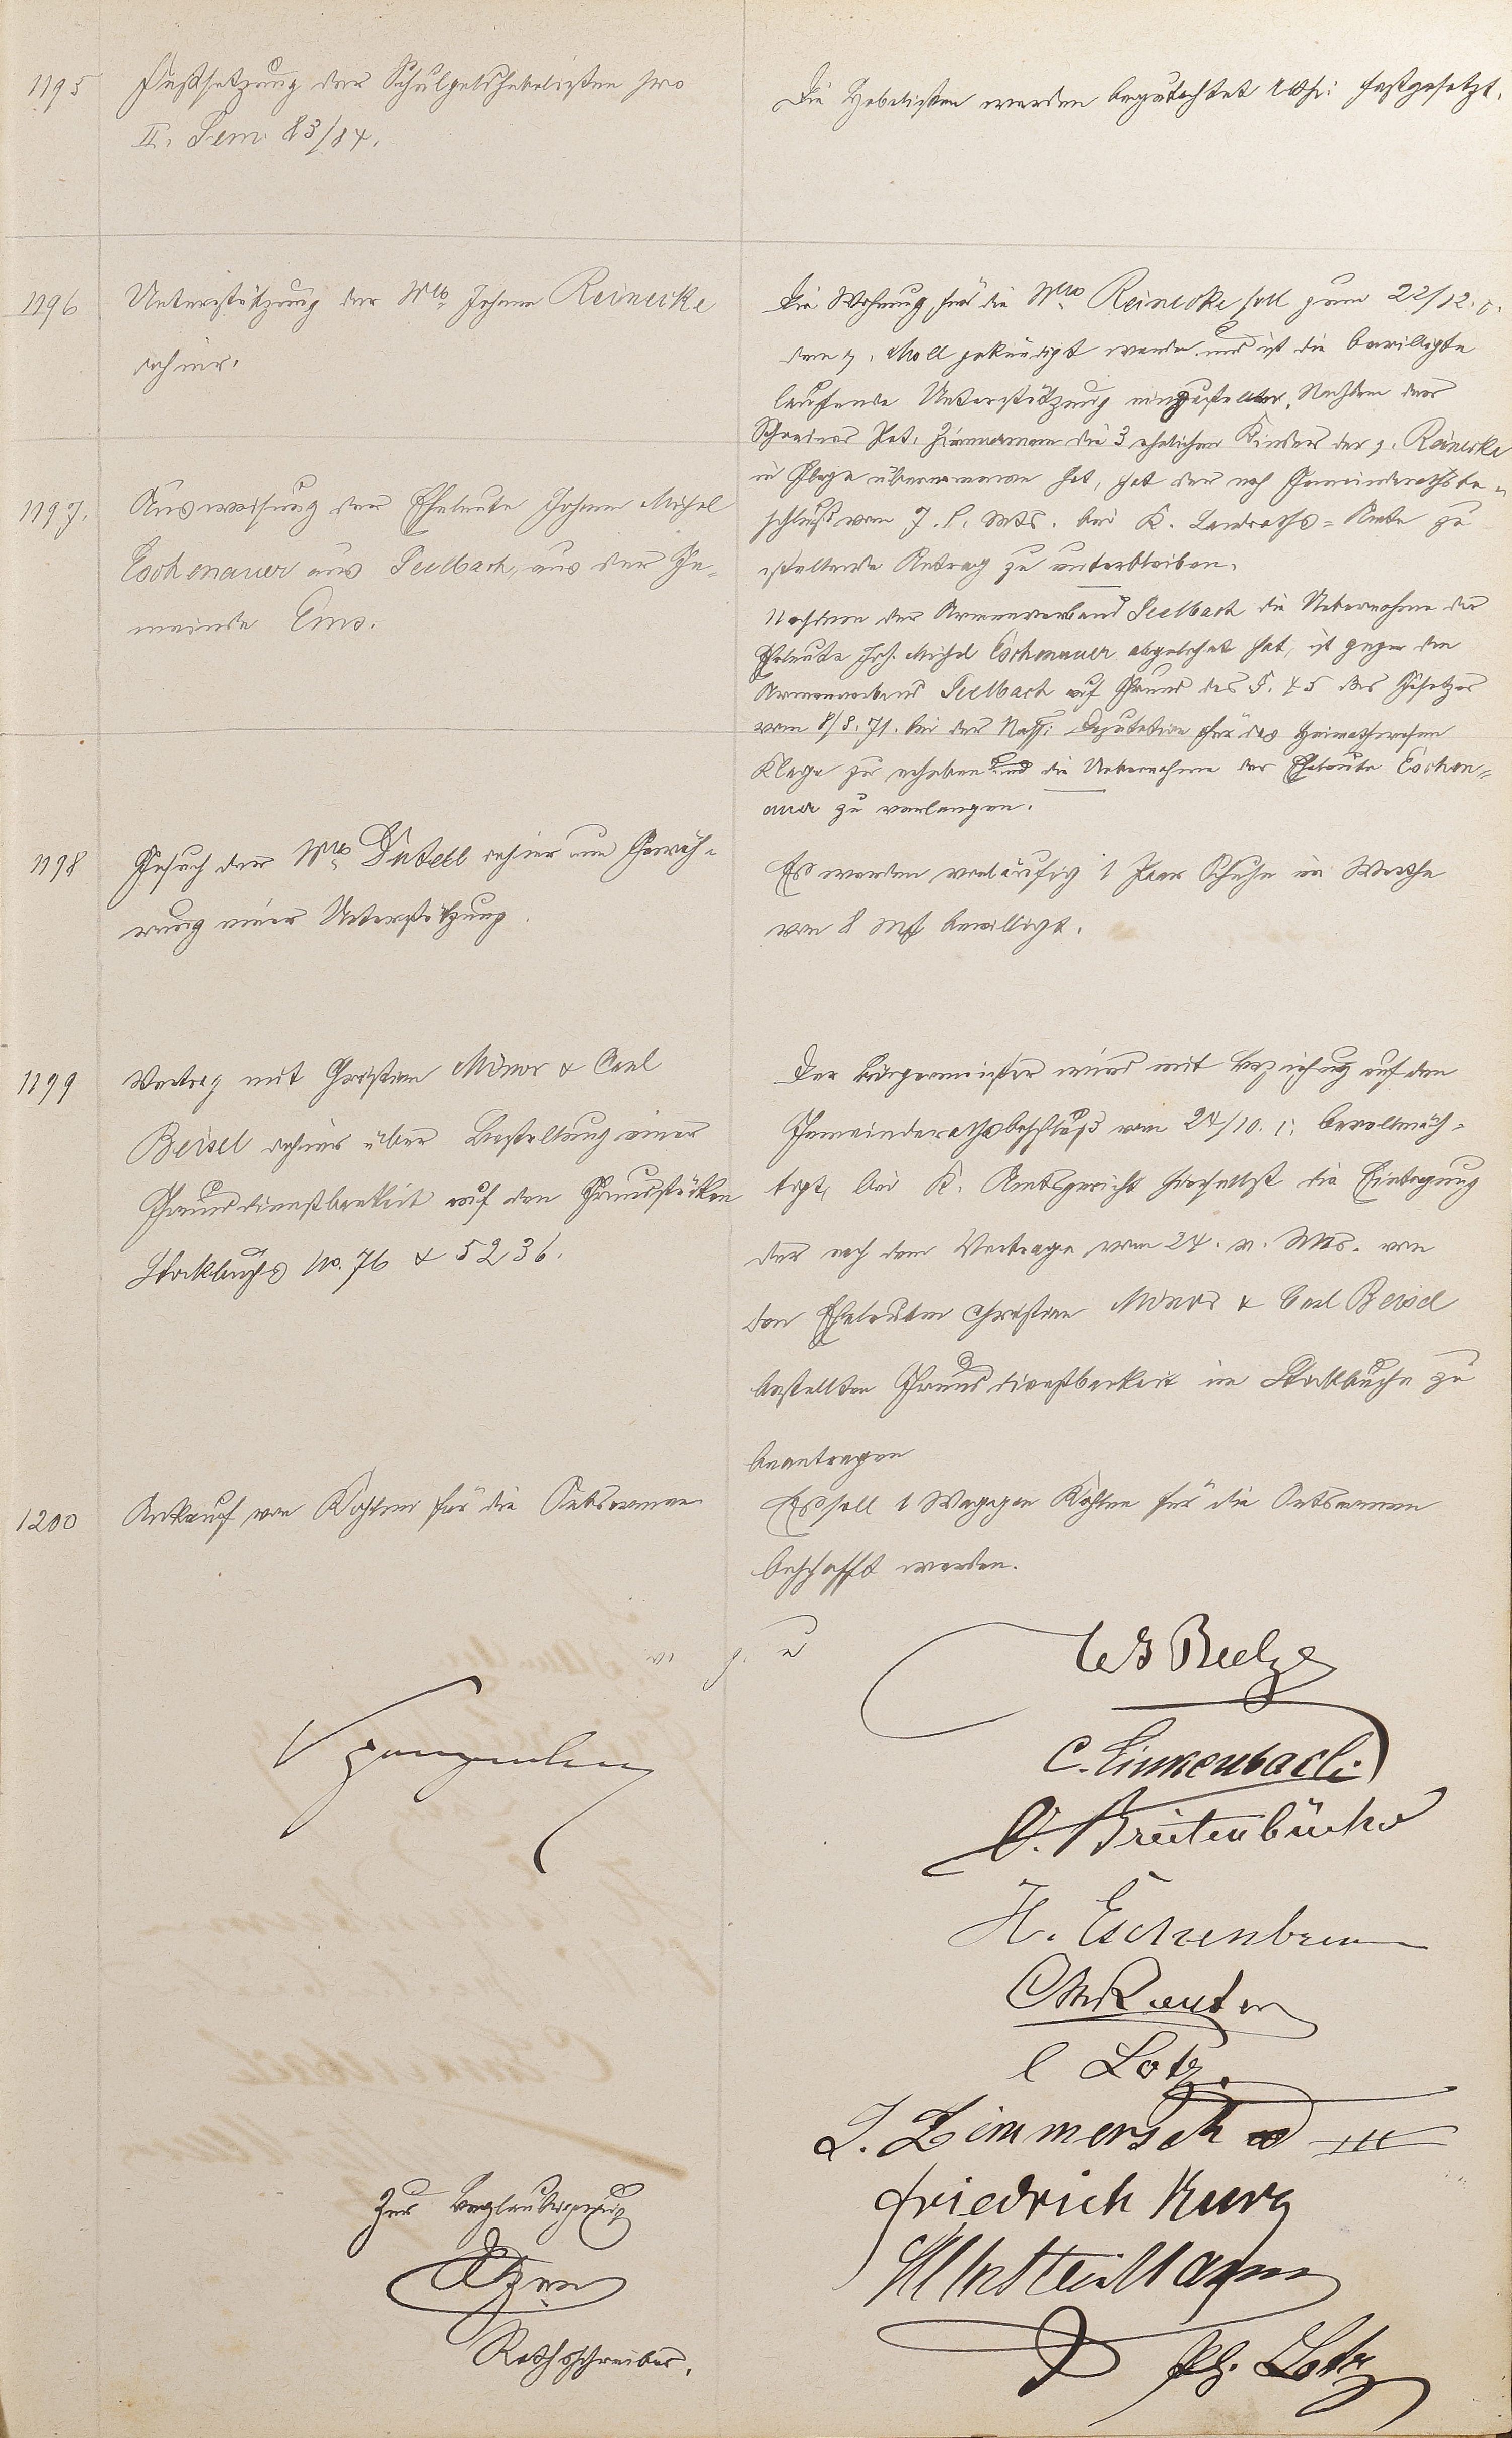 1195
Festsetzung der Schulgeldhebelisten pro
II. Sem 83/84.
Die Hebelisten werden begutachtet resp: festgesetzt.
1196
Unterstützung der Wwe Johann Reinecke
dahier.
Die Wohnung für die Wwe Reinecke soll zum 22/12. c.
dem p. Moll gekündigt werden und ist die bewilligte
laufende Unterstützung einzustellen. Nachdem der
Schreiner Pet. Zimmermann die 3 ehelichen Kinder der p. Reinecke
in Pflege übernommen hat, hat der nach Gemeinderathsbe-
schluß vom 7. l. Mts. bei K. Landraths-Amte zu
stellende Antrag zu unterbleiben.
1197.
Ausweisung der Eheleute Johann Michel
Eschenauer aus Seelbach, aus der Ge-
meinde Ems.
Nachdem der Armenverband Seelbach die Uebernahme der
Eheleute Joh. Michel Eschenauer abgelehnt hat, ist gegen den
Armenverband Seelbach auf Grund des §. 45 des Gesetzes
vom 8/3. 71. bei der Nass: Deputation für das Heimathwesen
Klage zu erheben und die Uebernahme der Eheleute Eschen-
auer zu verlangen.
1198
Gesuch der Wwe Dutell dahier um Gewäh-
rung einer Unterstützung.
Es werden vorläufig 1 Paar Schuhe im Werthe
von 8 Mk bewilligt.
1199
Vertrag mit Christian Minor & Carl
Beisel dahier über Bestellung einer
Grunddienstbarkeit auf den Grundstücken
Stockbuchs No. 76 & 5236.
Der Bürgermeister wird mit Beziehung auf den
Gemeinderathsbeschluß vom 24/10. c. bevollmäch-
tigt, bei K. Amtsgericht hierselbst die Eintragung
der nach dem Vertrage vom 24. v. Mts. von
den Eheleuten Christian Minor & Carl Beisel
bestellten Grunddienstbarkeit im Stockbuche zu
beantragen
1200
Ankauf von Kohlen für die Ortsarmen
Es soll 1 Waggon Kohlen für die Ortsarmen
beschafft werden.
v. g. u
C. Linkenbach
O. Breitenbücher
H. Eschenbrenner
C Lotz.
L. Zimmerschied III
Friedrich Kurz
Ph. Lotz
Zur Beglaubigung
Rathsschreiber.